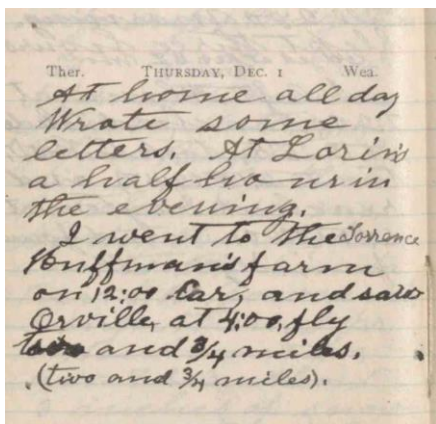 Ther. THURSDAY, DEC. 1 Wea.
At home all day
Wrote some
letters. At Lorin's
a half hour in
the evening.
I went to the Torrence
Huffman's farm
on 12:00 Car, and saw
Orville, at 4:00, fly
two and 3/4 miles.
(two and 3/4 miles).